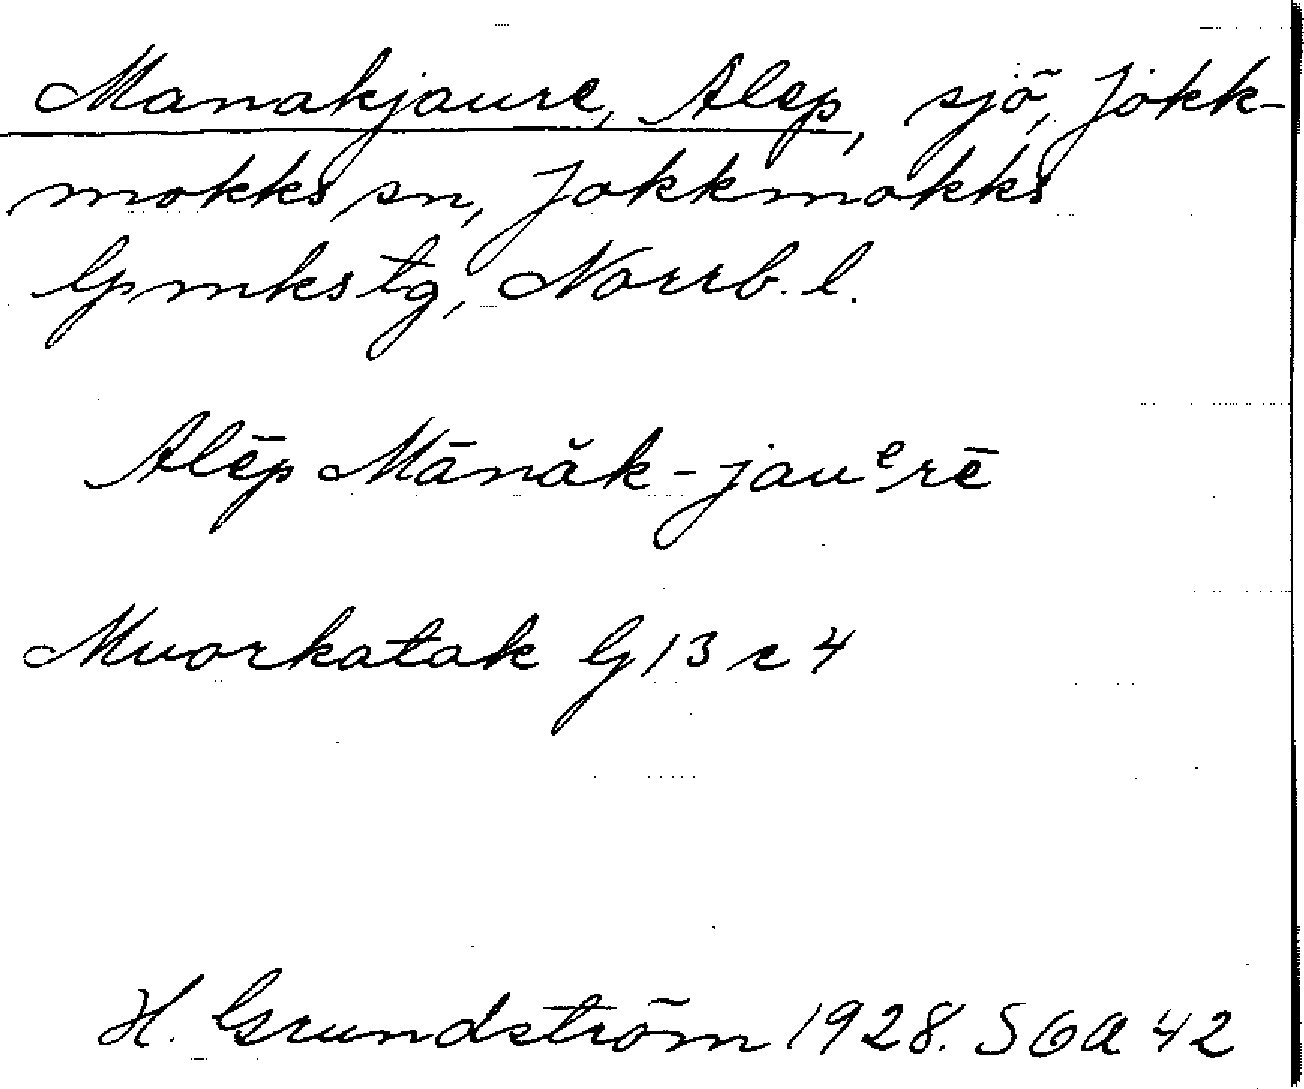 Manakjaure, Alep, sjö, Jokk-
mokks sn, Jokkmokks
lpmkstg, Norrb. l.
Alēp Mānăk-jauᵉrē
Muorkatak G 13 c 4
H. Grundström 1928. SOA 42